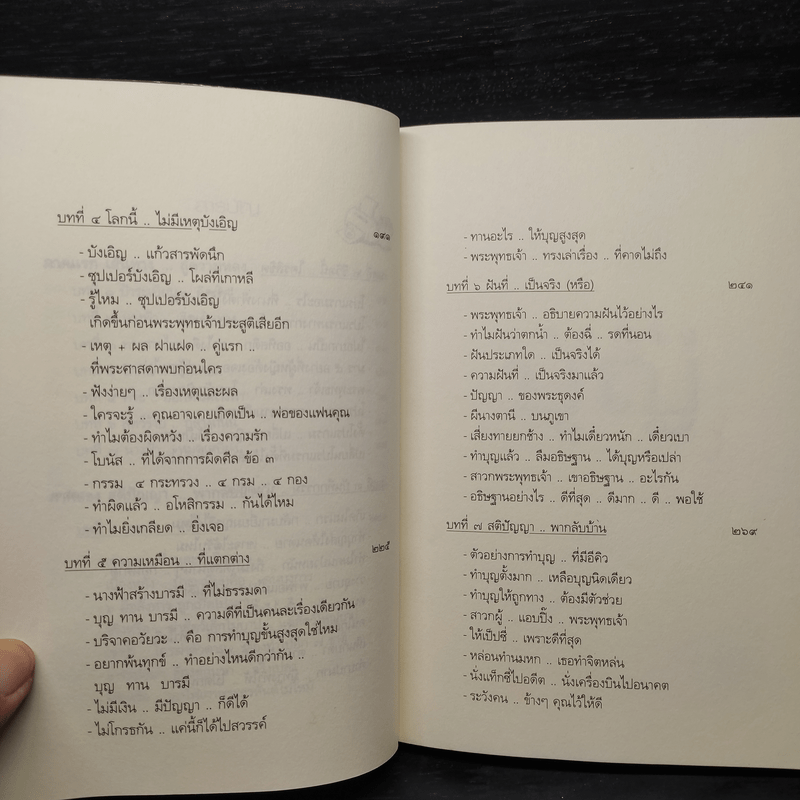 บทที่ ๔ โลกนี้ .. ไม่มีเหตุบังเอิญ
๑๙๑
- บังเอิญ .. แก้วสารพัดนึก
- ซุปเปอร์บังเอิญ .. โผล่ที่เกาหลี
- รู้ไหม .. ซุปเปอร์บังเอิญ
เกิดขึ้นก่อนพระพุทธเจ้าประสูติเสียอีก
- เหตุ + ผล ฝาแฝด .. คู่แรก ..
ที่พระศาสดาพบก่อนใคร
- ฟังง่ายๆ .. เรื่องเหตุและผล
- ใครจะรู้ .. คุณอาจเคยเกิดเป็น .. พ่อของแฟนคุณ
- ทำไมต้องผิดหวัง .. เรื่องความรัก
- โบนัส .. ที่ได้จากการผิดศีล ข้อ ๓
- กรรม ๔ กระทรวง .. ๔ กรม .. ๔ กอง
- ทำผิดแล้ว .. อโหสิกรรม .. กันได้ไหม
- ทำไมยิ่งเกลียด .. ยิ่งเจอ
บทที่ ๕ ความเหมือน .. ที่แตกต่าง
๒๒๕
- นางฟ้าสร้างบารมี .. ที่ไม่ธรรมดา
- บุญ ทาน บารมี .. ความดีที่เป็นคนละเรื่องเดียวกัน
- บริจาคอวัยวะ .. คือ การทำบุญขั้นสูงสุดใช่ไหม
- อยากพ้นทุกข์ .. ทำอย่างไหนดีกว่ากัน ..
บุญ ทาน บารมี
- ไม่มีเงิน .. มีปัญญา .. ก็ดีได้
- ไม่โกรธกัน .. แค่นี้ก็ได้ไปสวรรค์
- ทานอะไร .. ให้บุญสูงสุด
- พระพุทธเจ้า .. ทรงเล่าเรื่อง .. ที่คาดไม่ถึง
บทที่ ๖ ฝันที่ .. เป็นจริง (หรือ)
๒๔๑
- พระพุทธเจ้า .. อธิบายความฝันไว้อย่างไร
- ทำไมฝันว่าตกน้ำ .. ต้องฉี่ .. รดที่นอน
- ฝันประเภทใด .. เป็นจริงได้
- ความฝันที่ .. เป็นจริงมาแล้ว
- ปัญญา .. ของพระธุดงค์
- ผีนางตานี .. บนภูเขา
- เสี่ยงทายยกช้าง .. ทำไมเดี๋ยวหนัก .. เดี๋ยวเบา
- ทำบุญแล้ว .. ลืมอธิษฐาน .. ได้บุญหรือเปล่า
- สาวกพระพุทธเจ้า .. เขาอธิษฐาน .. อะไรกัน
- อธิษฐานอย่างไร .. ดีที่สุด .. ดีมาก .. ดี .. พอใช้
บทที่ ๗ สติปัญญา .. พากลับบ้าน
๒๖๙
- ตัวอย่างการทำบุญ .. ที่มีอีคิว
- ทำบุญตั้งมาก .. เหลือบุญนิดเดียว
- ทำบุญให้ถูกทาง .. ต้องมีตัวช่วย
- สาวกผู้ .. แอบปิ๊ง .. พระพุทธเจ้า
- ให้เป๊ปซี่ .. เพราะดีที่สุด
- หล่อนทำนมหก .. เธอทำจิตหล่น
- นั่งแท็กซี่ไปอดีต .. นั่งเครื่องบินไปอนาคต
- ระวังคน .. ข้างๆ คุณไว้ให้ดี